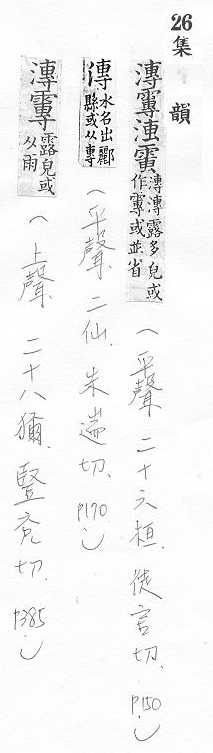 26 集韻
漙 漙漙露多皃或作或並省（平聲、二十六桓、徒官切、P150）
漙 水名出酈縣或从專（平聲、二仙、朱遄切、P170）
漙 露皃或从雨（上聲、二十八獮、豎兗切、P385）